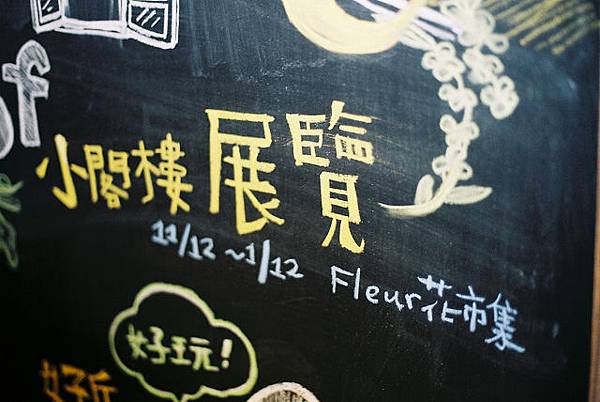 of
小閣樓展覽
11/12～1/12
Fleur花市集
好玩!
好丘